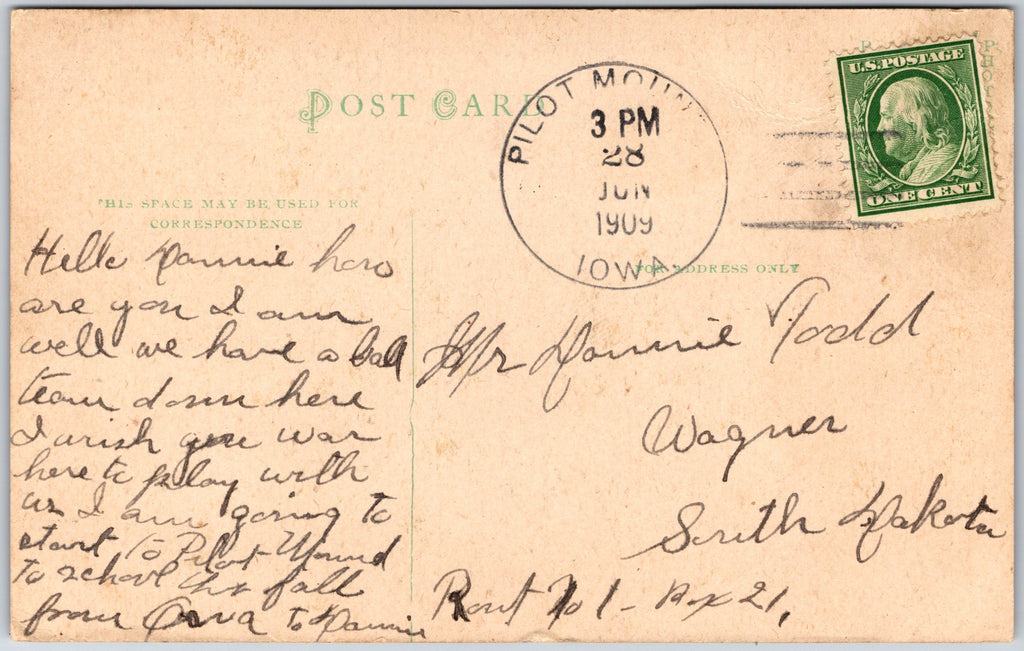 POST CARD
PILOT MOUN
3 PM
28
JUN
1909
IOWA
U.S. POSTAGE
ONE CENT
THIS SPACE MAY BE USED FOR
CORRESPONDENCE
FOR ADDRESS ONLY
Hello Dannie how
are you I am
well we have a ball
team down here
I wish you war
here to play with
us I am going to
start to Pilot Mound
to school this fall
from to Dannie
Mr Dannie Todd
Wagner
South Dakota
Rout No 1 - Box 21,